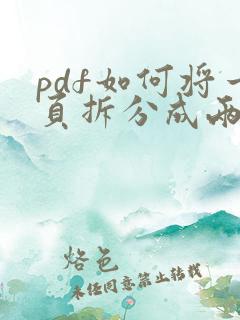 pdf如何将一
页拆分成两
烙色
未经同意禁止转载